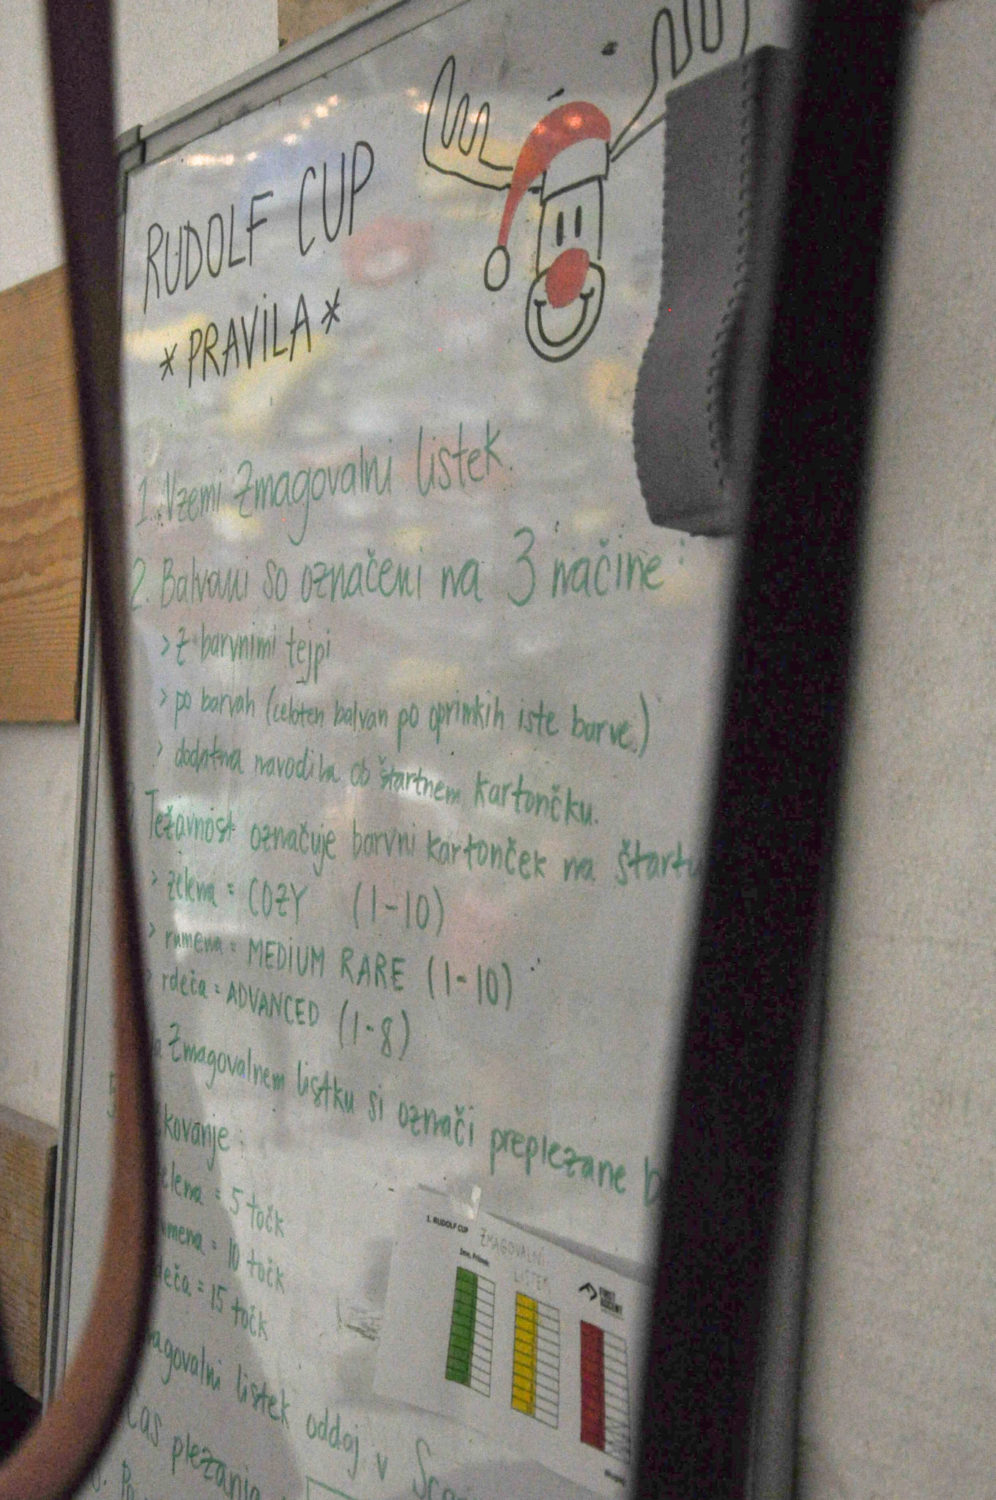 RUDOLF CUP
*PRAVILA*
1. Vzemi Zmagovalni listek.
2. Balvani so označeni na 3 načine:
> z barvnimi tejpi
> po barvah (celoten balvan po oprimkih iste barve)
> dodatna navodila ob štartnem kartončku.
Težavnost označuje barvni kartonček na štartu
> zelena = COZY (1-10)
> rumena = MEDIUM RARE (1-10)
> rdeča = ADVANCED (1-8)
a Zmagovalnem listku si označi preplezane b
5
kovanje:
elena = 5 točk
mena = 10 točk
deča = 15 točk
magovalni listek oddaj v
čas
1. RUDOLF CUP
ZMAGOVALNI
LISTEK
Ime, Priimek
FIRST
ASCENT